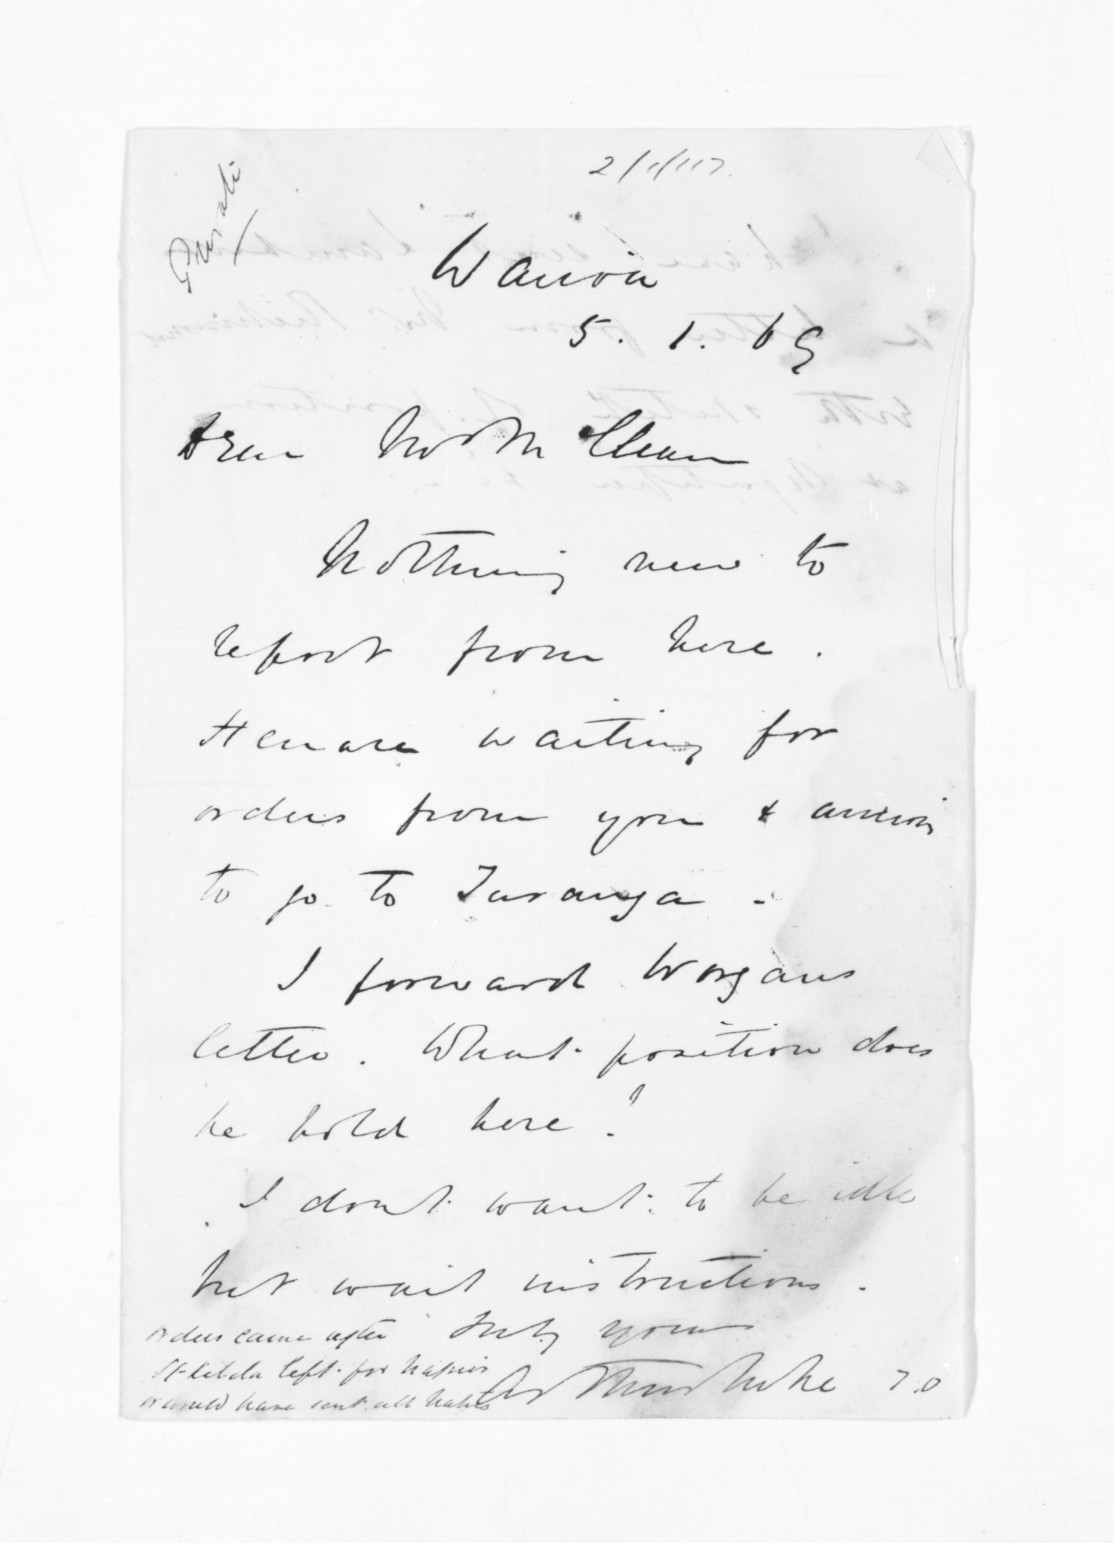 Private
2/1/117.
Wairoa
5. 1. 69
Dear Mr McLean
Nothing new to
report from here.
Henare waiting for
orders from you & anxious
to go to Turanga -
I forward Worgans
letter. What position does
he hold here?
I dont want to be idle
but wait instructions.
Truly yours
orders came after
St Kilda left for Napier
or would have sent all